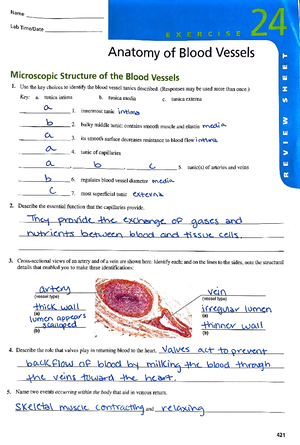 Name
Lab Time/Date
EXERCISE 24
REVIEW SHEET
Anatomy of Blood Vessels
Microscopic Structure of the Blood Vessels
1. Use the key choices to identify the blood vessel tunics described. (Responses may be used more than once.)
Key: a. tunica intima b. tunica media c. tunica externa
a 1. innermost tunic intima
b 2. bulky middle tunic; contains smooth muscle and elastin media
a 3. its smooth surface decreases resistance to blood flow intima
a 4. tunic of capillaries
a, b, c 5. tunic(s) of arteries and veins
b 6. regulates blood vessel diameter media
c 7. most superficial tunic externa
2. Describe the essential function that the capillaries provide.
They provide the exchange of gases and
nutrients between blood and tissue cells.
3. Cross-sectional views of an artery and of a vein are shown here. Identify each; and on the lines to the sides, note the structural
details that enabled you to make these identifications:
artery vein
(vessel type) (vessel type)
thick wall irregular lumen
(a) (a)
lumen appears scalloped thinner wall
(b) (b)
4. Describe the role that valves play in returning blood to the heart. Valves act to prevent
backflow of blood by milking the blood through
the veins toward the heart.
5. Name two events occurring within the body that aid in venous return.
Skeletal muscle contracting and relaxing
421